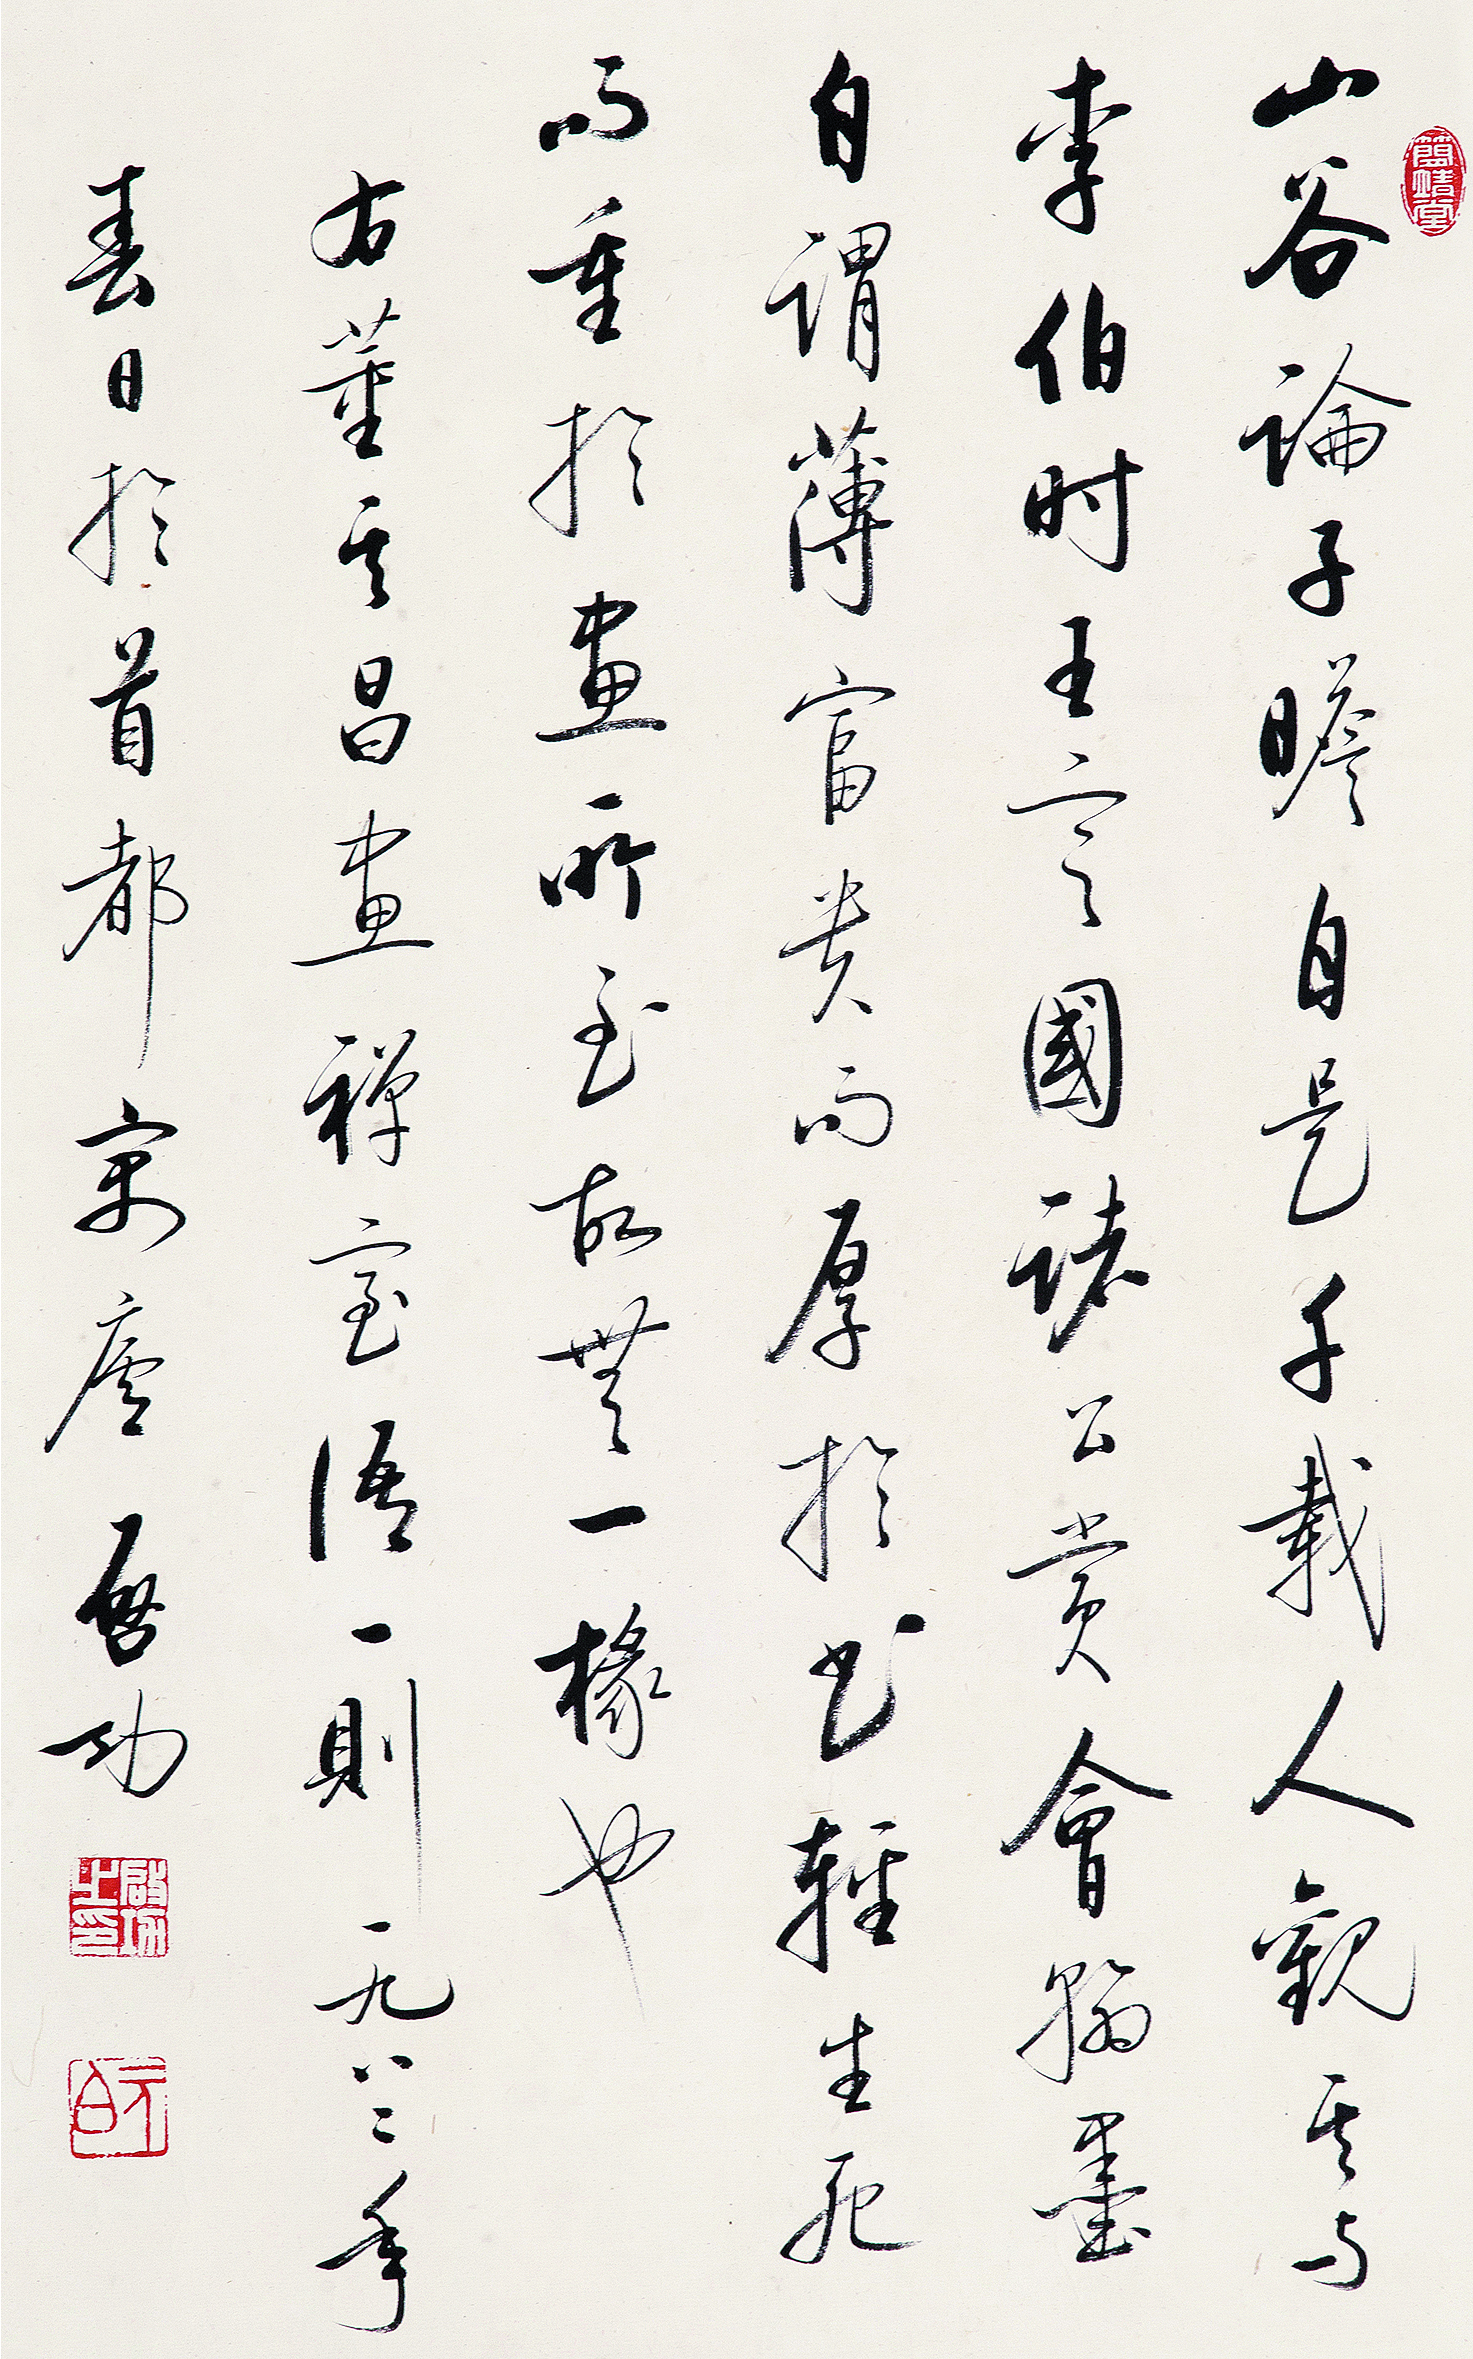 簡靖堂
山谷論子瞻自是千載人觀其与
李伯时王定國諸公賞會翰墨
自謂薄富貴而厚於書輕生死
而重於畫所至故無一椽也
右董其昌畫禪室語一則一九八二年
春日於首都寓廬啓功
啟功之印
元白